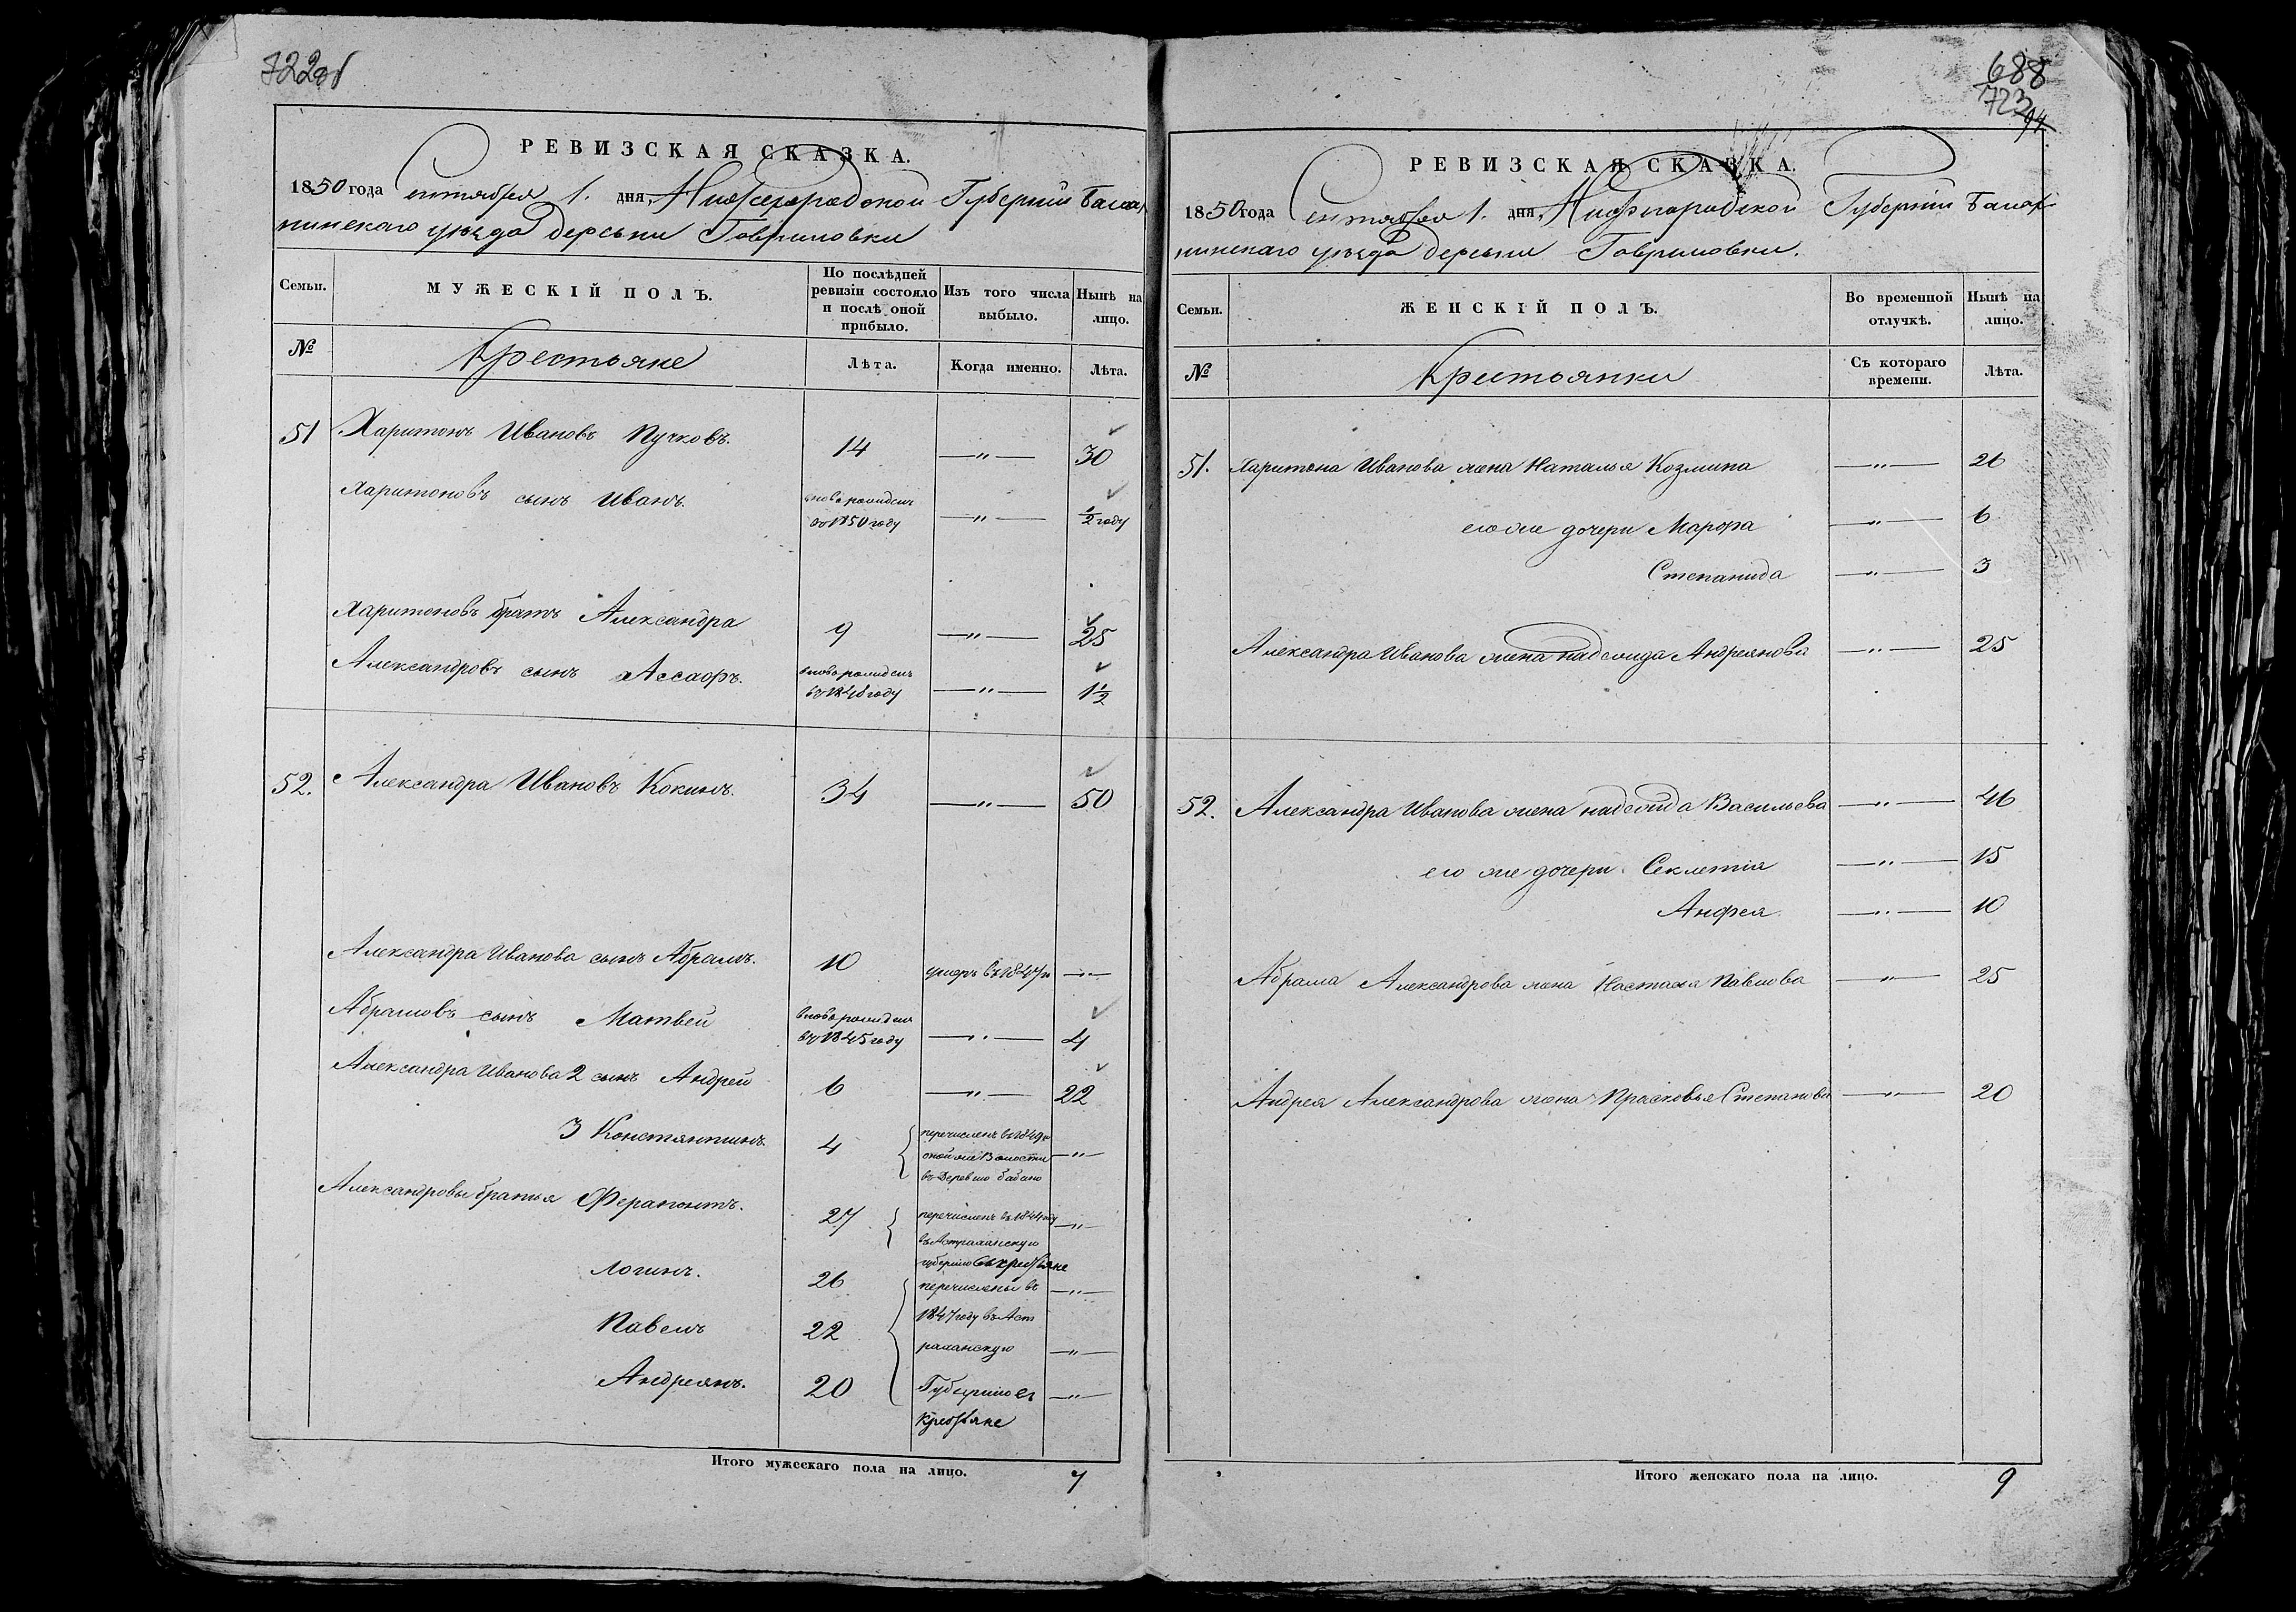 722об
РЕВИЗСКАЯ СКАЗКА.
1850 года Сентября 1. дня, Нижегородской Губернии Балах
нинскаго уѣзда Деревни Гавриловки
Семьи.
МУЖЕСКІЙ ПОЛЪ.
По послѣдней ревизіи состояло и послѣ оной прибыло.
Изъ того числа выбыло.
Нынѣ на лицо.
№
Крестьяне
Лѣта.
Когда именно.
Лѣта.
51 Харитонъ Ивановъ Пучковъ. 14 —"— 30
Харитоновъ сынъ Иванъ. вновь рожденъ
въ 1850 году —"— 1/2 году
Харитоновъ братъ Александра 9 —"— 25
Александровъ сынъ Ассафъ. вновь рожденъ
въ 1848 году —"— 1 1/2
52. Александра Ивановъ Кокинъ. 34 —"— 50
Александра Иванова сынъ Абрамъ. 10 умеръ въ 1847 —"—
Абрамовъ сынъ Матвей вновь рожденъ
въ 1845 году —"— 4
Александра Иванова 2 сынъ Андрей 6 —"— 22
3 Константинъ. 4 перечисленъ въ 1849
оной же Волости —"—
въ Деревню Бабино
Александровы братья Ферапонтъ. 27 перечисленъ въ 1844 году —"—
въ Астраханскую
губернію въ крестьяне
Логинъ. 26 перечислены въ —"—
Павелъ 22 1847 году въ Аст
раханскую —"—
Андреянъ. 20 Губернію въ —"—
крестьяне
Итого мужескаго пола на лицо. 7
688
723
94
РЕВИЗСКАЯ СКАЗКА.
1850 года Сентября 1. дня, Нижегородской Губерніи Балах
нинскаго уѣзда Деревни Гавриловки.
Семьи.
ЖЕНСКІЙ ПОЛЪ.
Во временной отлучкѣ.
Нынѣ на лицо.
№
Крестьянки
Съ котораго времени.
Лѣта.
51. Харитона Иванова жена Наталья Козмина —"— 26
его же дочери Марфа —"— 6
Степанида —"— 3
Александра Иванова жена надежда Андреянова —"— 25
52. Александра Иванова жена надежда Васильева —"— 46
его же дочери Секлетія —"— 15
Анфея —"— 10
Абрама Александрова жена Настасья Павлова —"— 25
Андрея Александрова жена Прасковья Степанова —"— 20
Итого женскаго пола на лицо. 9